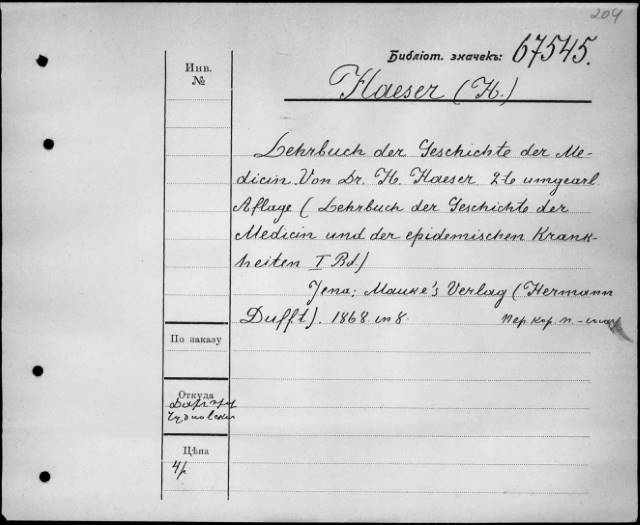 204
Библіот. значекъ: 67545.
Инв.
№
Haeser (H.)
Lehrbuch der Geschichte der Me-
dicin. Von Dr. H. Haeser 2te umgearb.
Aflage (Lehrbuch der Geschichte der
Medicin und der epidemischen Krank-
heiten I Bd.)
Jena: Mauke's Verlag (Hermann
Dufft). 1868 in 8.
Пер. кор. п.
По заказу
Откуда
Чудновскаго
Цѣна
4р.